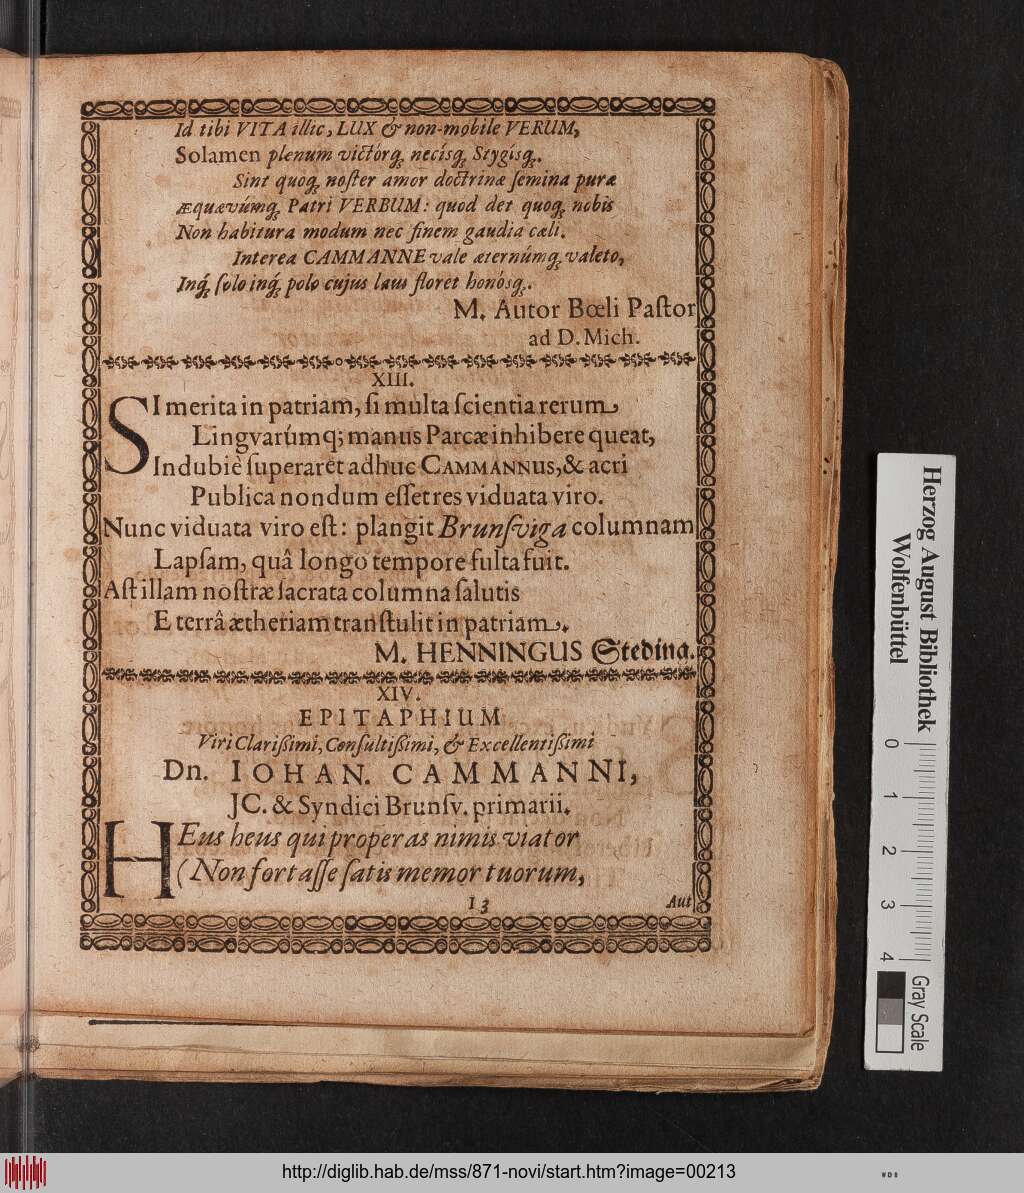 Id tibi VITA illic, LUX & non-mobile VERUM,
Solamen plenum victórq; necísq; Stygísq;.
Sint quoq; noſter amor doctrinæ ſemina puræ
æquævúmq; Patri VERBUM: quod det quoq; nobis
Non habitura modum nec finem gaudia cæli.
Interea CAMMANNE vale æternúmq; valeto,
Inq; ſolo inq; polo cujus laus floret honósq;.
M. Autor Bœli Paſtor
ad D. Mich.
XIII.
SI merita in patriam, ſi multa ſcientia rerum
Lingvarúmq; manus Parcæ inhibere queat,
Indubiè ſuperaret adhuc CAMMANNUS, & acri
Publica nondum eſſet res viduata viro.
Nunc viduata viro eſt: plangit Brunſviga columnam
Lapſam, quâ longo tempore fulta fuit.
Aſt illam noſtræ ſacrata columna ſalutis
E terrâ ætheriam tranſtulit in patriam.
M. HENNINGUS Stedina.
XIV.
EPITAPHIUM
Viri Clarißimi, Conſultißimi, & Excellentißimi
Dn. IOHAN. CAMMANNI,
JC. & Syndici Brunſv. primarii.
HEus heus qui properas nimis viator
(Non fortaſſe ſatis memor tuorum,
I 3
Aut
Herzog August Bibliothek
Wolfenbüttel
0 1 2 3 4
Gray Scale
http://diglib.hab.de/mss/871-novi/start.htm?image=00213
WDB